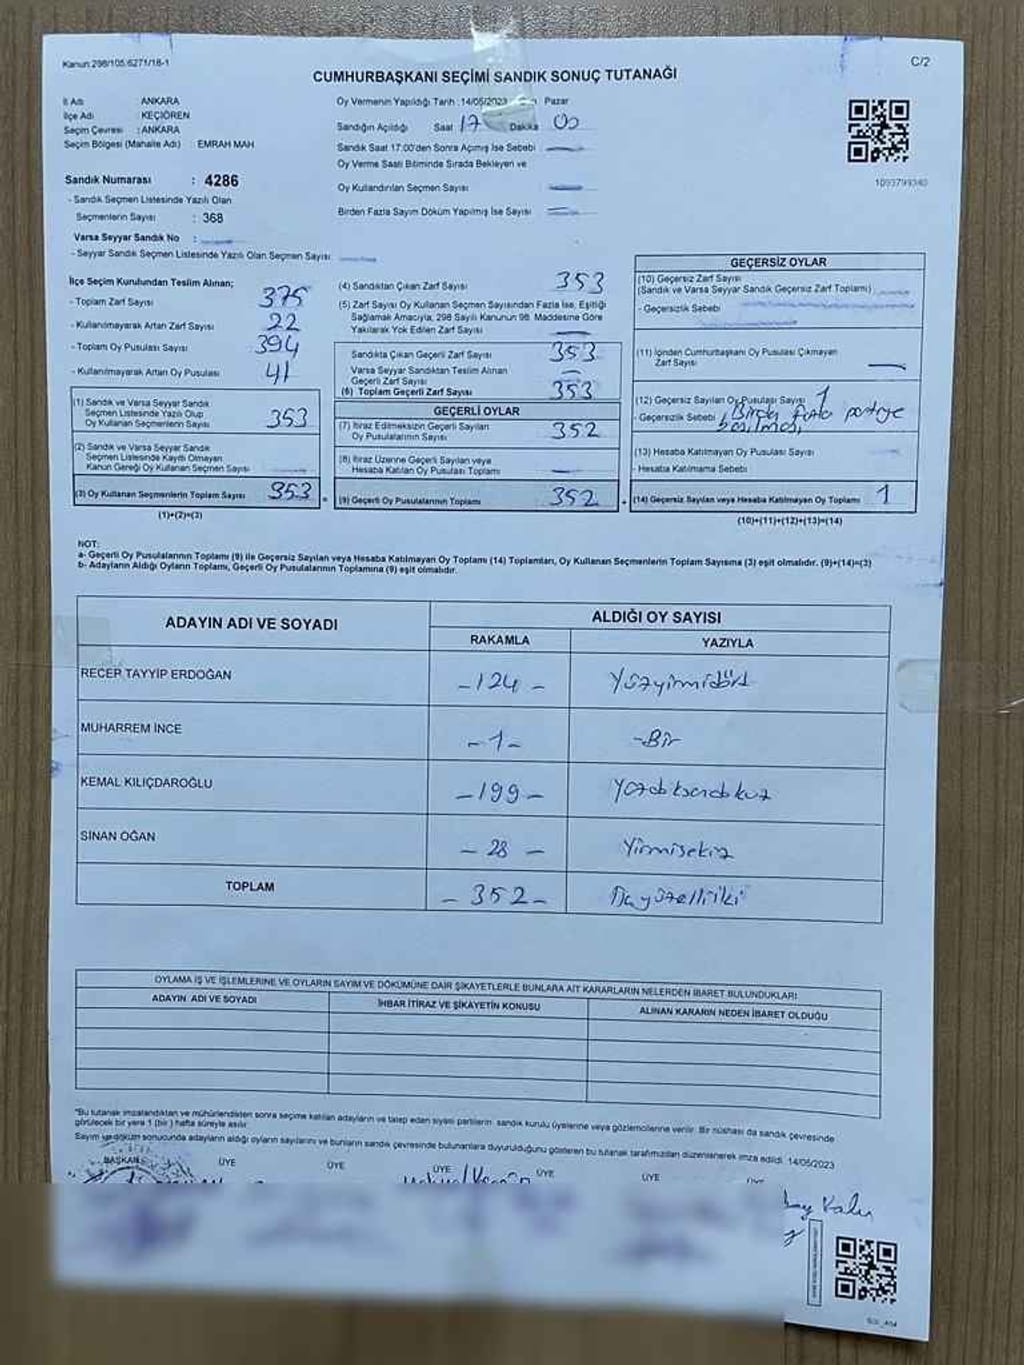 Kanun 298/105,6271/18-1
C/2
CUMHURBAŞKANI SEÇİMİ SANDIK SONUÇ TUTANAĞI
İl Adı ANKARA
İlçe Adı KEÇİÖREN
Seçim Çevresi : ANKARA
Seçim Bölgesi (Mahalle Adı) EMRAH MAH
Sandık Numarası : 4286
- Sandık Seçmen Listesinde Yazılı Olan
Seçmenlerin Sayısı : 368
Varsa Seyyar Sandık No :
- Seyyar Sandık Seçmen Listesinde Yazılı Olan Seçmen Sayısı:
Oy Vermenin Yapıldığı Tarih : 14/05/2023 Pazar
Sandığın Açıldığı Saat 17 Dakika 00
Sandık Saat 17:00'den Sonra Açımış İse Sebebi
Oy Verme Saati Bitiminde Sırada Bekleyen ve
Oy Kullandırılan Seçmen Sayısı
Birden Fazla Sayım Döküm Yapılmış İse Sayısı
1093799340
İlçe Seçim Kurulundan Teslim Alınan;
- Toplam Zarf Sayısı 375
- Kullanılmayarak Artan Zarf Sayısı 22
- Toplam Oy Pusulası Sayısı 394
- Kullanılmayarak Artan Oy Pusulası 41
(1) Sandık ve Varsa Seyyar Sandık
Seçmen Listesinde Yazılı Olup
Oy Kullanan Seçmenlerin Sayısı 353
(2) Sandık ve Varsa Seyyar Sandık
Seçmen Listesinde Kayıtlı Olmayan
Kanun Gereği Oy Kullanan Seçmen Sayısı
(3) Oy Kullanan Seçmenlerin Toplam Sayısı 353
(1)+(2)=(3)
(4) Sandıktan Çıkan Zarf Sayısı 353
(5) Zarf Sayısı Oy Kullanan Seçmen Sayısından Fazla İse, Eşitliği
Sağlamak Amacıyla, 298 Sayılı Kanunun 98. Maddesine Göre
Yakılarak Yok Edilen Zarf Sayısı
Sandıkta Çıkan Geçerli Zarf Sayısı 353
Varsa Seyyar Sandıktan Teslim Alınan
Geçerli Zarf Sayısı
(6) Toplam Geçerli Zarf Sayısı 353
GEÇERLİ OYLAR
(7) İtiraz Edilmeksizin Geçerli Sayılan
Oy Pusulalarının Sayısı 352
(8) İtiraz Üzerine Geçerli Sayılan veya
Hesaba Katılan Oy Pusulası Toplamı
(9) Geçerli Oy Pusulalarının Toplamı 352
GEÇERSİZ OYLAR
(10) Geçersiz Zarf Sayısı
(Sandık ve Varsa Seyyar Sandık Geçersiz Zarf Toplamı)
- Geçersizlik Sebebi
(11) İçinden Cumhurbaşkanı Oy Pusulası Çıkmayan
Zarf Sayısı
(12) Geçersiz Sayılan Oy Pusulası Sayısı 1
- Geçersizlik Sebebi Birden fazla partiye
basılması
(13) Hesaba Katılmayan Oy Pusulası Sayısı
- Hesaba Katılmama Sebebi
(14) Geçersiz Sayılan veya Hesaba Katılmayan Oy Toplamı 1
(10)+(11)+(12)+(13)=(14)
NOT:
a- Geçerli Oy Pusulalarının Toplamı (9) ile Geçersiz Sayılan veya Hesaba Katılmayan Oy Toplamı (14) Toplamları, Oy Kullanan Seçmenlerin Toplam Sayısına (3) eşit olmalıdır. (9)+(14)=(3)
b- Adayların Aldığı Oyların Toplamı, Geçerli Oy Pusulalarının Toplamına (9) eşit olmalıdır.
ADAYIN ADI VE SOYADI
ALDIĞI OY SAYISI
RAKAMLA YAZIYLA
RECEP TAYYİP ERDOĞAN -124- Yüzyirmidört
MUHARREM İNCE -1- -Bir
KEMAL KILIÇDAROĞLU -199- Yüzdoksandokuz
SİNAN OĞAN - 28 - Yirmisekiz
TOPLAM - 352 - Üçyüzelliiki
OYLAMA İŞ VE İŞLEMLERİNE VE OYLARIN SAYIM VE DÖKÜMÜNE DAİR ŞİKAYETLERLE BUNLARA AİT KARARLARIN NELERDEN İBARET BULUNDUKLARI
ADAYIN ADI VE SOYADI
İHBAR İTİRAZ VE ŞİKAYETİN KONUSU
ALINAN KARARIN NEDEN İBARET OLDUĞU
"Bu tutanak imzalandıktan ve mühürlendikten sonra seçime katılan adayların ve talep eden siyasi partilerin sandık kurulu üyelerine veya gözlemcilerine verilir. Bir nüshası da sandık çevresinde
görülecek bir yere 1 (bir) hafta süreyle asılır.
Sayım ve döküm sonucunda adayların aldığı oyların sayılarını ve bunların sandık çevresinde bulunanlara duyurulduğunu gösteren bu tutanak tarafımızdan düzenlenerek imza edildi. 14/05/2023
BAŞKAN ÜYE ÜYE ÜYE ÜYE ÜYE